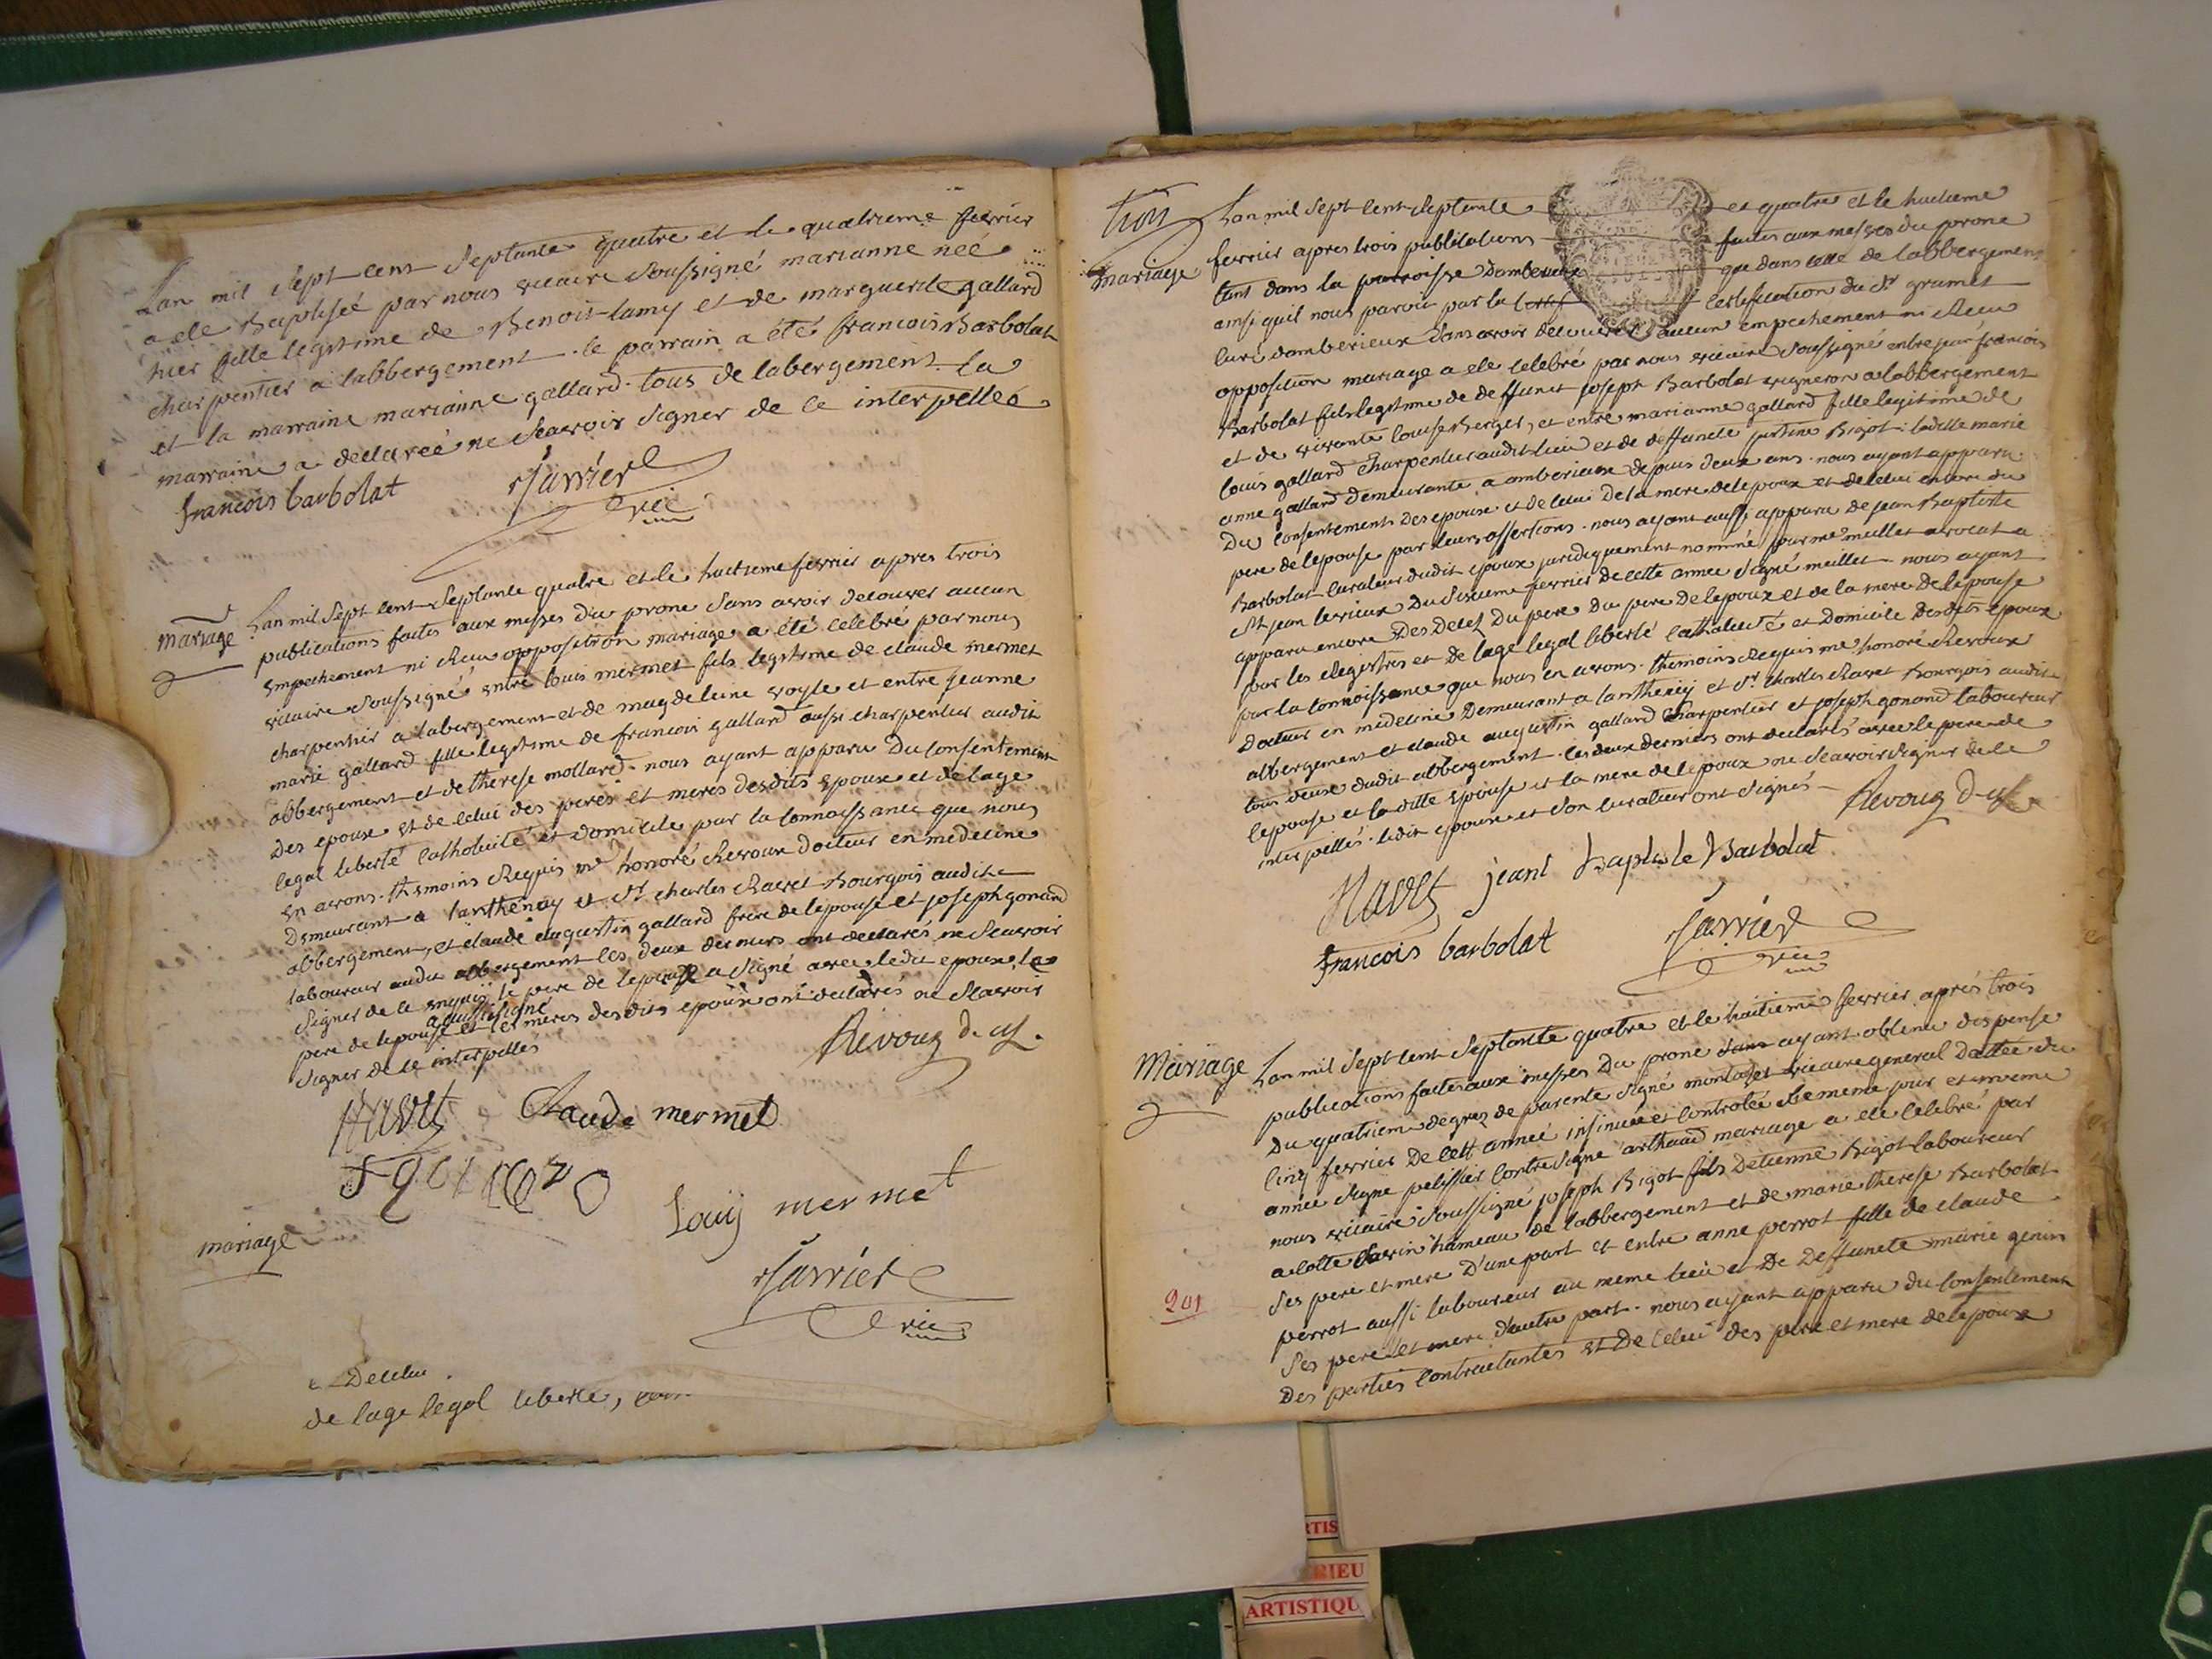 Lan mil sept cent septante quatre et le quatrieme fevrier
a ete baptiseé par nous vicaire soussigné marianne neé
hier fille legitime de Benoit lamy et de marguerite gallard
charpentier a labbergement. le parrain a été francois Barbolat
et la marraine marianne gallard. tous de labergement. la
marraine a declareé ne scavoir signer de ce interpelleé
francois barbolat
Jarrier
vic
mariage
Lan mil sept cent septante quatre et le huitieme fevrier apres trois
publications faites aux messes du prone sans avoir decouver aucun
empechement ni Recu opposition mariage a été celebré par nous
vicaire soussigné entre louis mermet fils legitime de claude mermet
charpentier a labergement et de magdeleine et entre jeanne
marie gallard fille legitime de francois gallard aussi charpentier audit
abbergement et de therese mollard. nous ayant apparu du consentement
des epoux et de celui des peres et meres desdits epoux et de lage
legal liberté catholicité et domicile par la connoissance que nous
en avons. themoins Requis me honoré Revoux docteur en medecine
demeurant a lanthenay et sr charles Ravet Bourgois audit
abbergement, et claude augustin gallard frere de lepouse et joseph gonand
laboureur audit abbergement les deux derniers ont declarés ne scavoir
signer de ce le pere de lepouse a signé avec ledit epoux, le
a aussi signé
pere de lepouse et les meres desdits epoux ont declarés ne scavoir
signer de ce interpellés
Revoux d. M.
Ravet Claude mermet
Louij mermet
Jarrier
vic
mariage
de lage legal liberté,
trois
mariage
Lan mil sept cent septante et quatre et le huitieme
fevrier apres trois publications faites aux messes du prone
tant dans la parroisse dambericux que dans celle de labbergement
ainsi quil nous paroit par la certif certification du Sr gramet
curé dambericux sans avoir decouvert aucun empechement ni Recu
opposition mariage a ete celebré par nous vicaire soussigné entre jean francois
Barbolat fils legitime de deffunct joseph Barbolat vigneron a labbergement
et de vivante louise Berger, et entre marianne gallard fille legitime de
louis gallard charpentier audit lieu et de deffuncte justine Bigot. laditte marie
anne gallard demeurante a amberieux depuis deux ans. nous ayant apparu
du consentement des epoux et de celui de la mere de lepoux et de celui encore du
pere de lepouse par leurs assertions. nous ayant aussi apparu de jean Baptiste
Barbolat curateur dudit epoux juridiquement nommé par me meillet avocat a
St jean levieux du sixieme fevrier de cette annee signé meillet nous ayant
apparu encore des deces du pere du pere de lepoux et de la mere de lepouse
par les Registres et de lage legal liberté catholicité et domicile desdits epoux
par la connoissance que nous en avons. themoins Requis me honoré Revoux
docteur en medecine demeurant a lanthenay et Sr charles Ravet Bourgois audit
abbergement et claude augustin gallard charpentier et joseph gonand laboureur
tous deux dudit abbergement. les deux derniers ont declarés avec le pere de
lepouse et la ditte epouse et la mere de lepoux ne scavoir signer de ce
interpellés. ledit epoux et son curateur ont signés
Revoux d. M.
Ravet jeant baptiste barbolat
francois barbolat Jarrier
vic
Mariage
Lan mil sept cent septante quatre et le huitieme fevrier aprés trois
publications faites aux messes du prone sans ayant obtenu dispense
du quatrieme degrez de parenté signé vicaire general dattée du
cinq fevrier de cett anneé insinuée et controlée le meme jour et meme
année signe pelissier contresigné arthaud mariage a ete celebré par
nous vicaire soussigné joseph Bigot fils detienne Bigot laboureur
a cotte savin hameau de labbergement et de marie therese Barbolat
ses pere et mere d'une part et entre anne perrot fille de claude
perrot aussi laboureur au meme lieu et de deffuncte marie genin
201
ses pere et mere dautre part. nous ayant apparu du consentement
des parties contractantes et de celui des pere et mere de lepoux